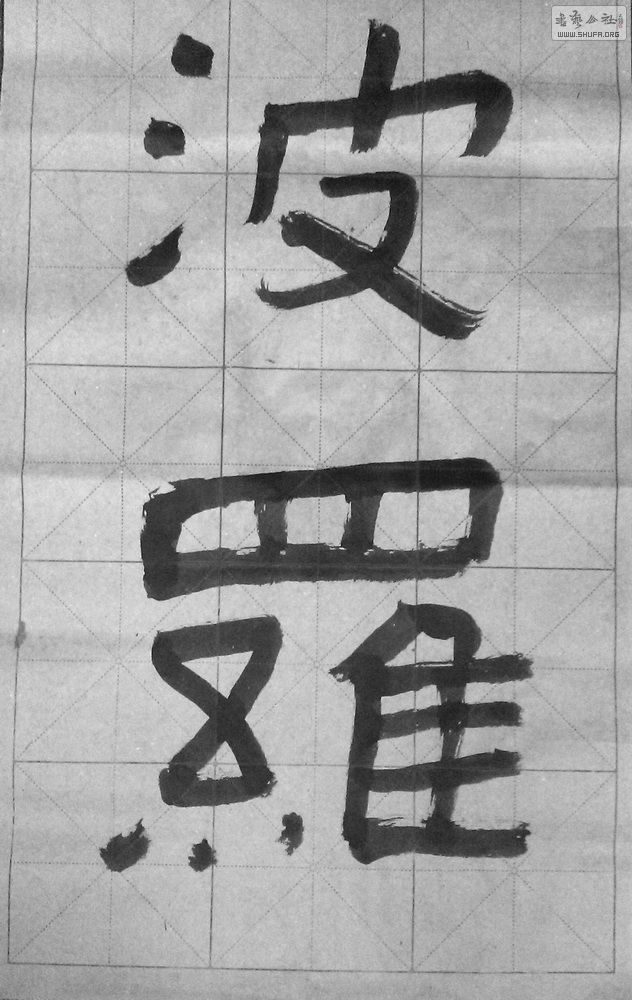 波
羅
书艺公社
WWW.SHUFA.ORG